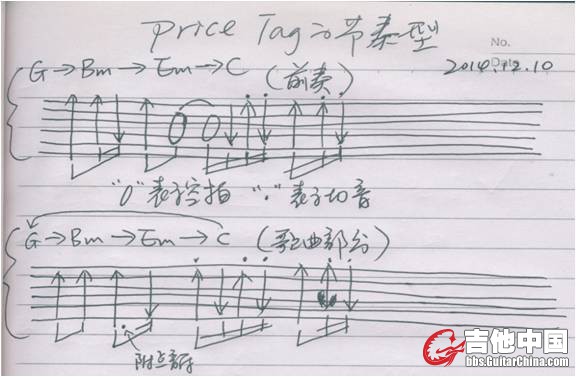 Price Tag的节奏型
No.
Date
2014.12.10
G→Bm→Em→C (前奏)
"0"表示空拍 "·"表示切音
G→Bm→Em→C (歌曲部分)
附点音符
吉他中国
bbs.GuitarChina.com